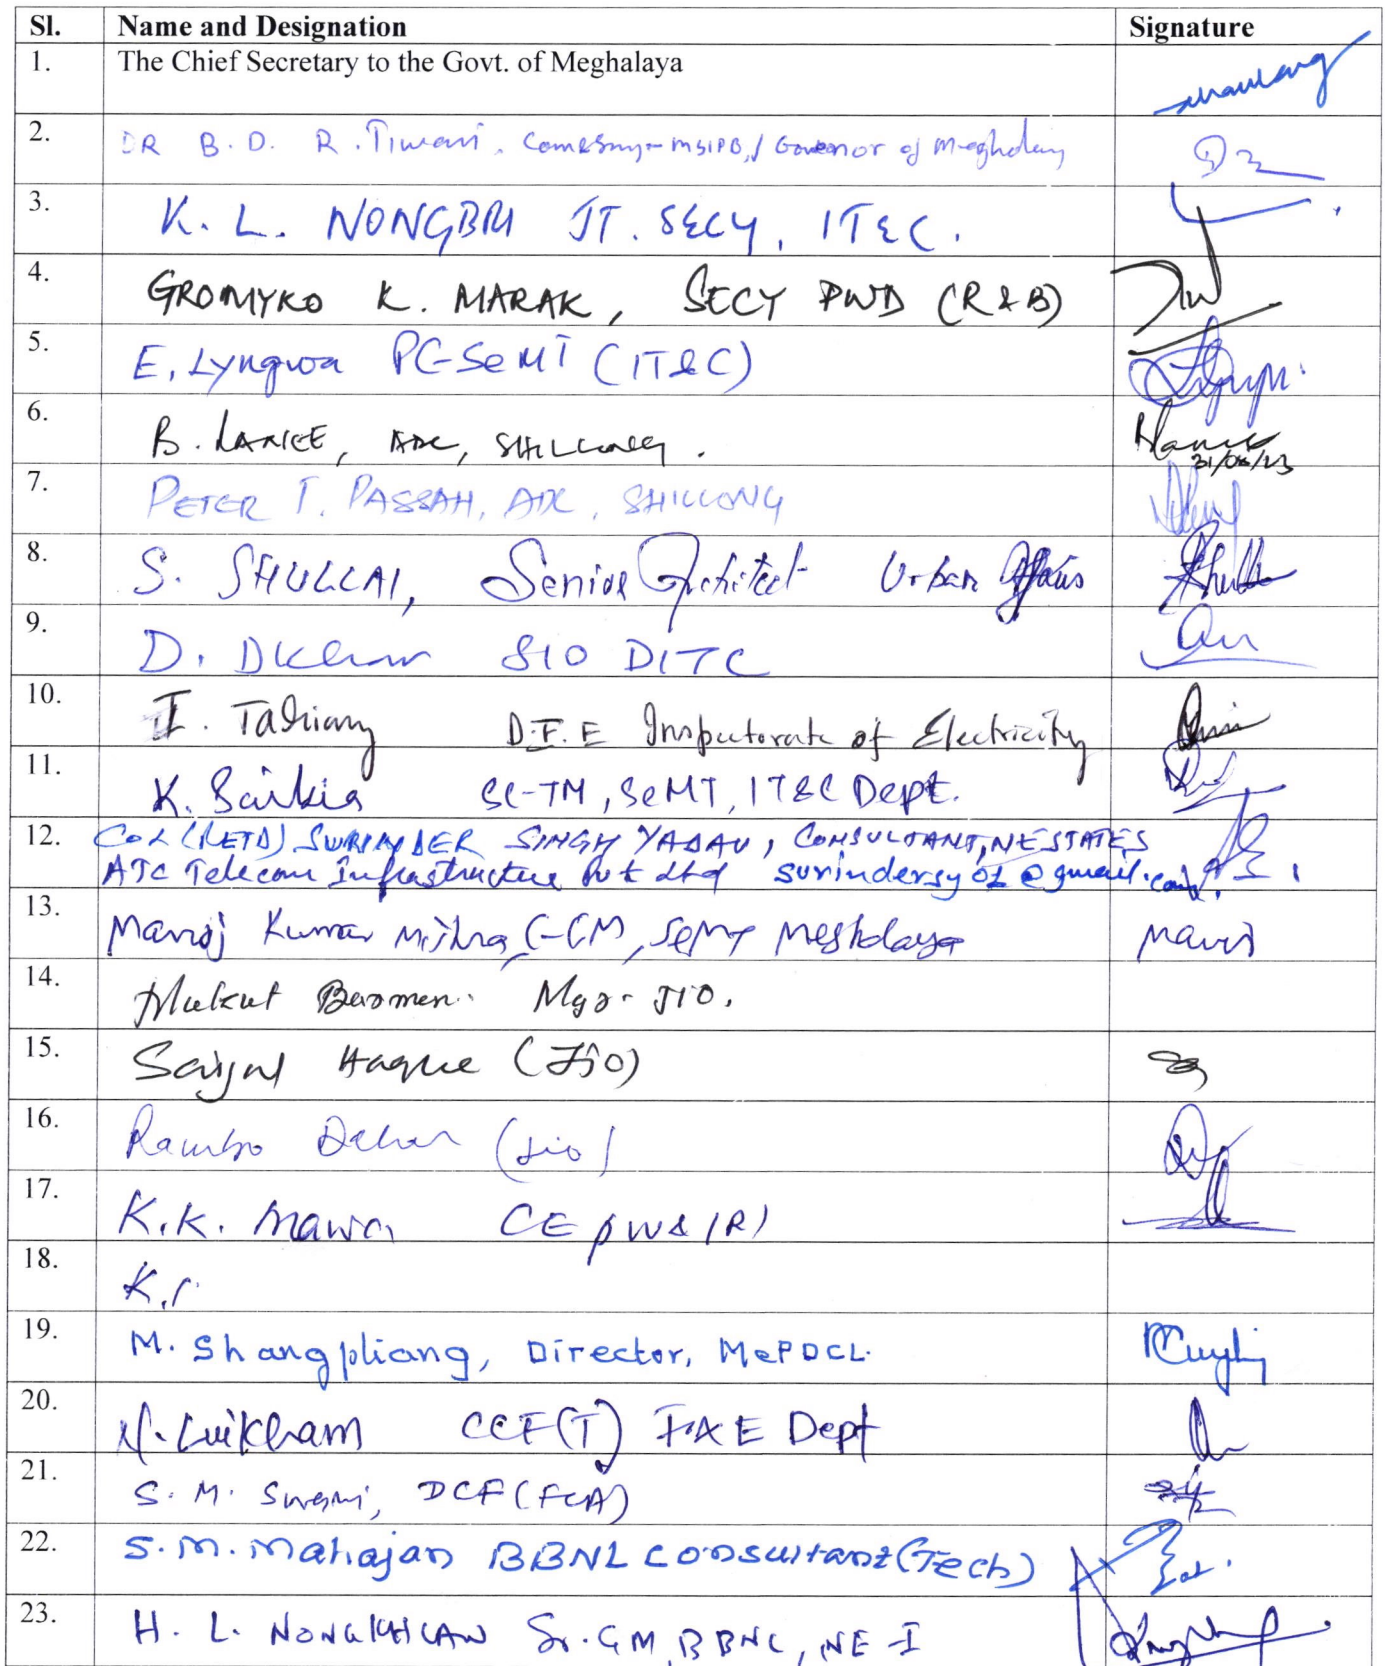 Sl. Name and Designation Signature
1. The Chief Secretary to the Govt. of Meghalaya
2. DR B. D. R. Tiwari, Governor of Meghalaya
3. K. L. NONGBRI JT. SECY, IT&C.
4. GROMYKO K. MARAK, SECY PWD (R&B)
5. E. Lyngwa PC-SeMT (IT&C)
6. B. ADC, SHILLONG.
31/08/23
7. PETER T. PASSAH, ADC, SHILLONG
8. S. SHULLAI, Senior Architect Urban Affairs
9. D. Dkhar SIO DITC
10. I. Tariang D.F.E Inspectorate of Electricity
11. K. Saikia SC-TM, SeMT, IT&C Dept.
12. COL (RETD) SURINDER SINGH YADAV, CONSULTANT, NE STATES
ATC Telecom Infrastructure Pvt Ltd surindersy01@gmail.com
13. Manoj Kumar Mishra, C-CM, SeMT Meghalaya Manoj
14. Mukut Barman. Mgr- JIO.
15. Haque (JIO)
16. Rambo Dkhar (Jio)
17. K.K. CE PWD (R)
18. K.
19. M. Shangpliang, Director, MePDCL.
20. N. Luikham CCF(T) F&E Dept
21. S. M. Swami, DCF (FCA)
22. S.M. Mahajan BBNL Consultant (Tech)
23. H. L. NONGKHLAW Sr. GM, BBNL, NE-I